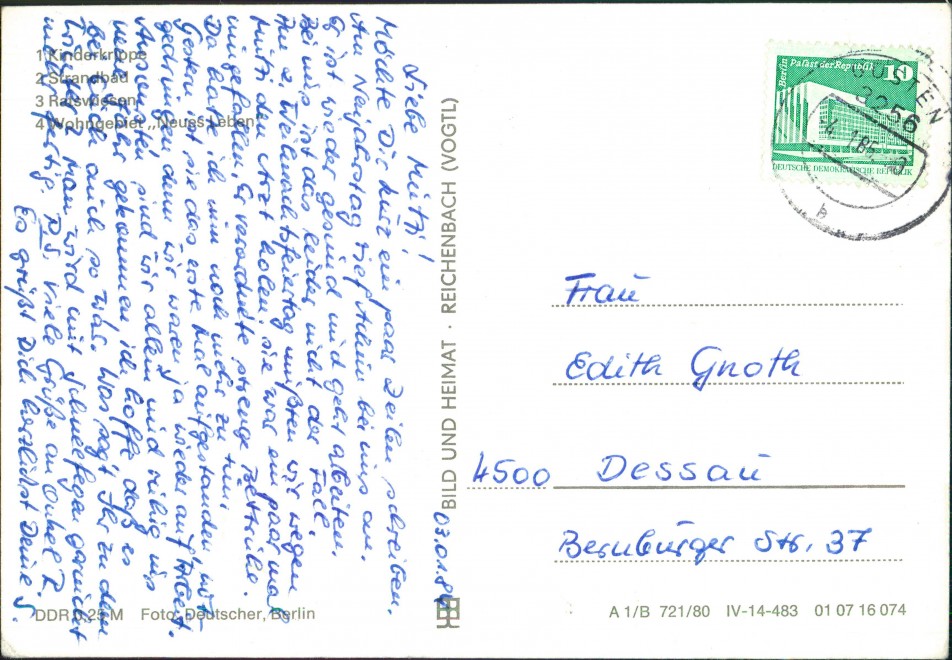 1 Kinderkrippe
2 Strandbad
3 Ratswiesen
4 Wohngebiet „Neues Leben"
Liebe Mutzi!
Möchte Dir kurz ein paar Zeilen schreiben.
Am Neujahrstag rief Achim bei uns an.
Er ist wieder gesund und geht arbeiten.
Bei uns ist das leider nicht der Fall.
Am 2. Weihnachtsfeiertag mußten wir wegen
Mutti den Arzt holen. Sie war ein paar mal
umgefallen. Er verordnete strenge Bettruhe.
Da hatte ich nun noch mehr zu tun.
Gestern ist sie das erste Mal aufgestanden, not
gedrungen denn wir waren ja wieder auf Arbeit.
Ansonsten sind wir allein und ruhig ins
neue Jahr gekommen ich hoffe daß es
bei Euch auch so war. Was sagt Ihr zu dem
Man wird mit Schneefegen garnicht
mehr fertig. P.S. Viele Grüße an Onkel R.
Es grüßt Dich herzlichst Deine
03.01.84
BILD UND HEIMAT · REICHENBACH (VOGTL)
Berlin Palast der Republik 10
DEUTSCHE DEMOKRATISCHE REPUBLIK
GÜSTEN
3256
Frau
Edith Gnoth
4500 Dessau
Bernburger Str. 37
DDR 0,25 M Foto: Deutscher, Berlin
A 1/B 721/80 IV-14-483 01 07 16 074